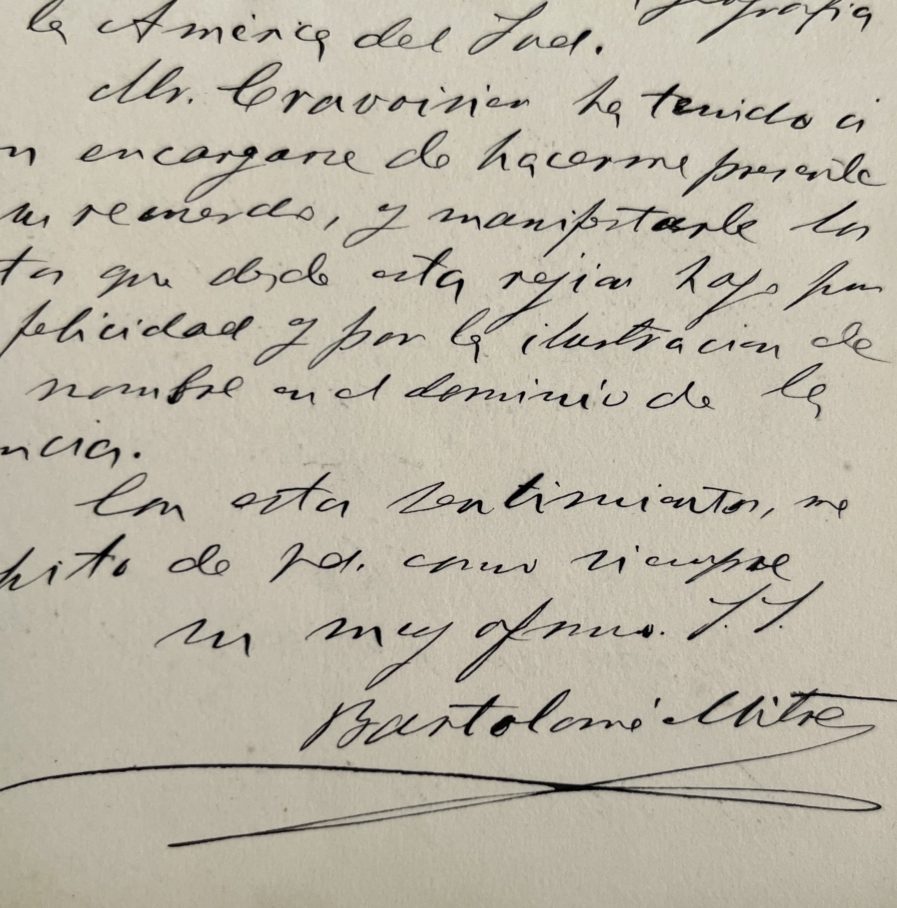 geografia
la América del Sud.
Mr. Cravoisier ha tenido á
n encargarse de hacerme presente
su recuerdo, y manifestarle los
tos que desde esta rejion hago por
felicidad y por la ilustracion de
nombre en el dominio de la
ncia.
Con estos sentimientos, me
pito de Vd. como siempre
su muy afmo. S.S.
Bartolomé Mitre